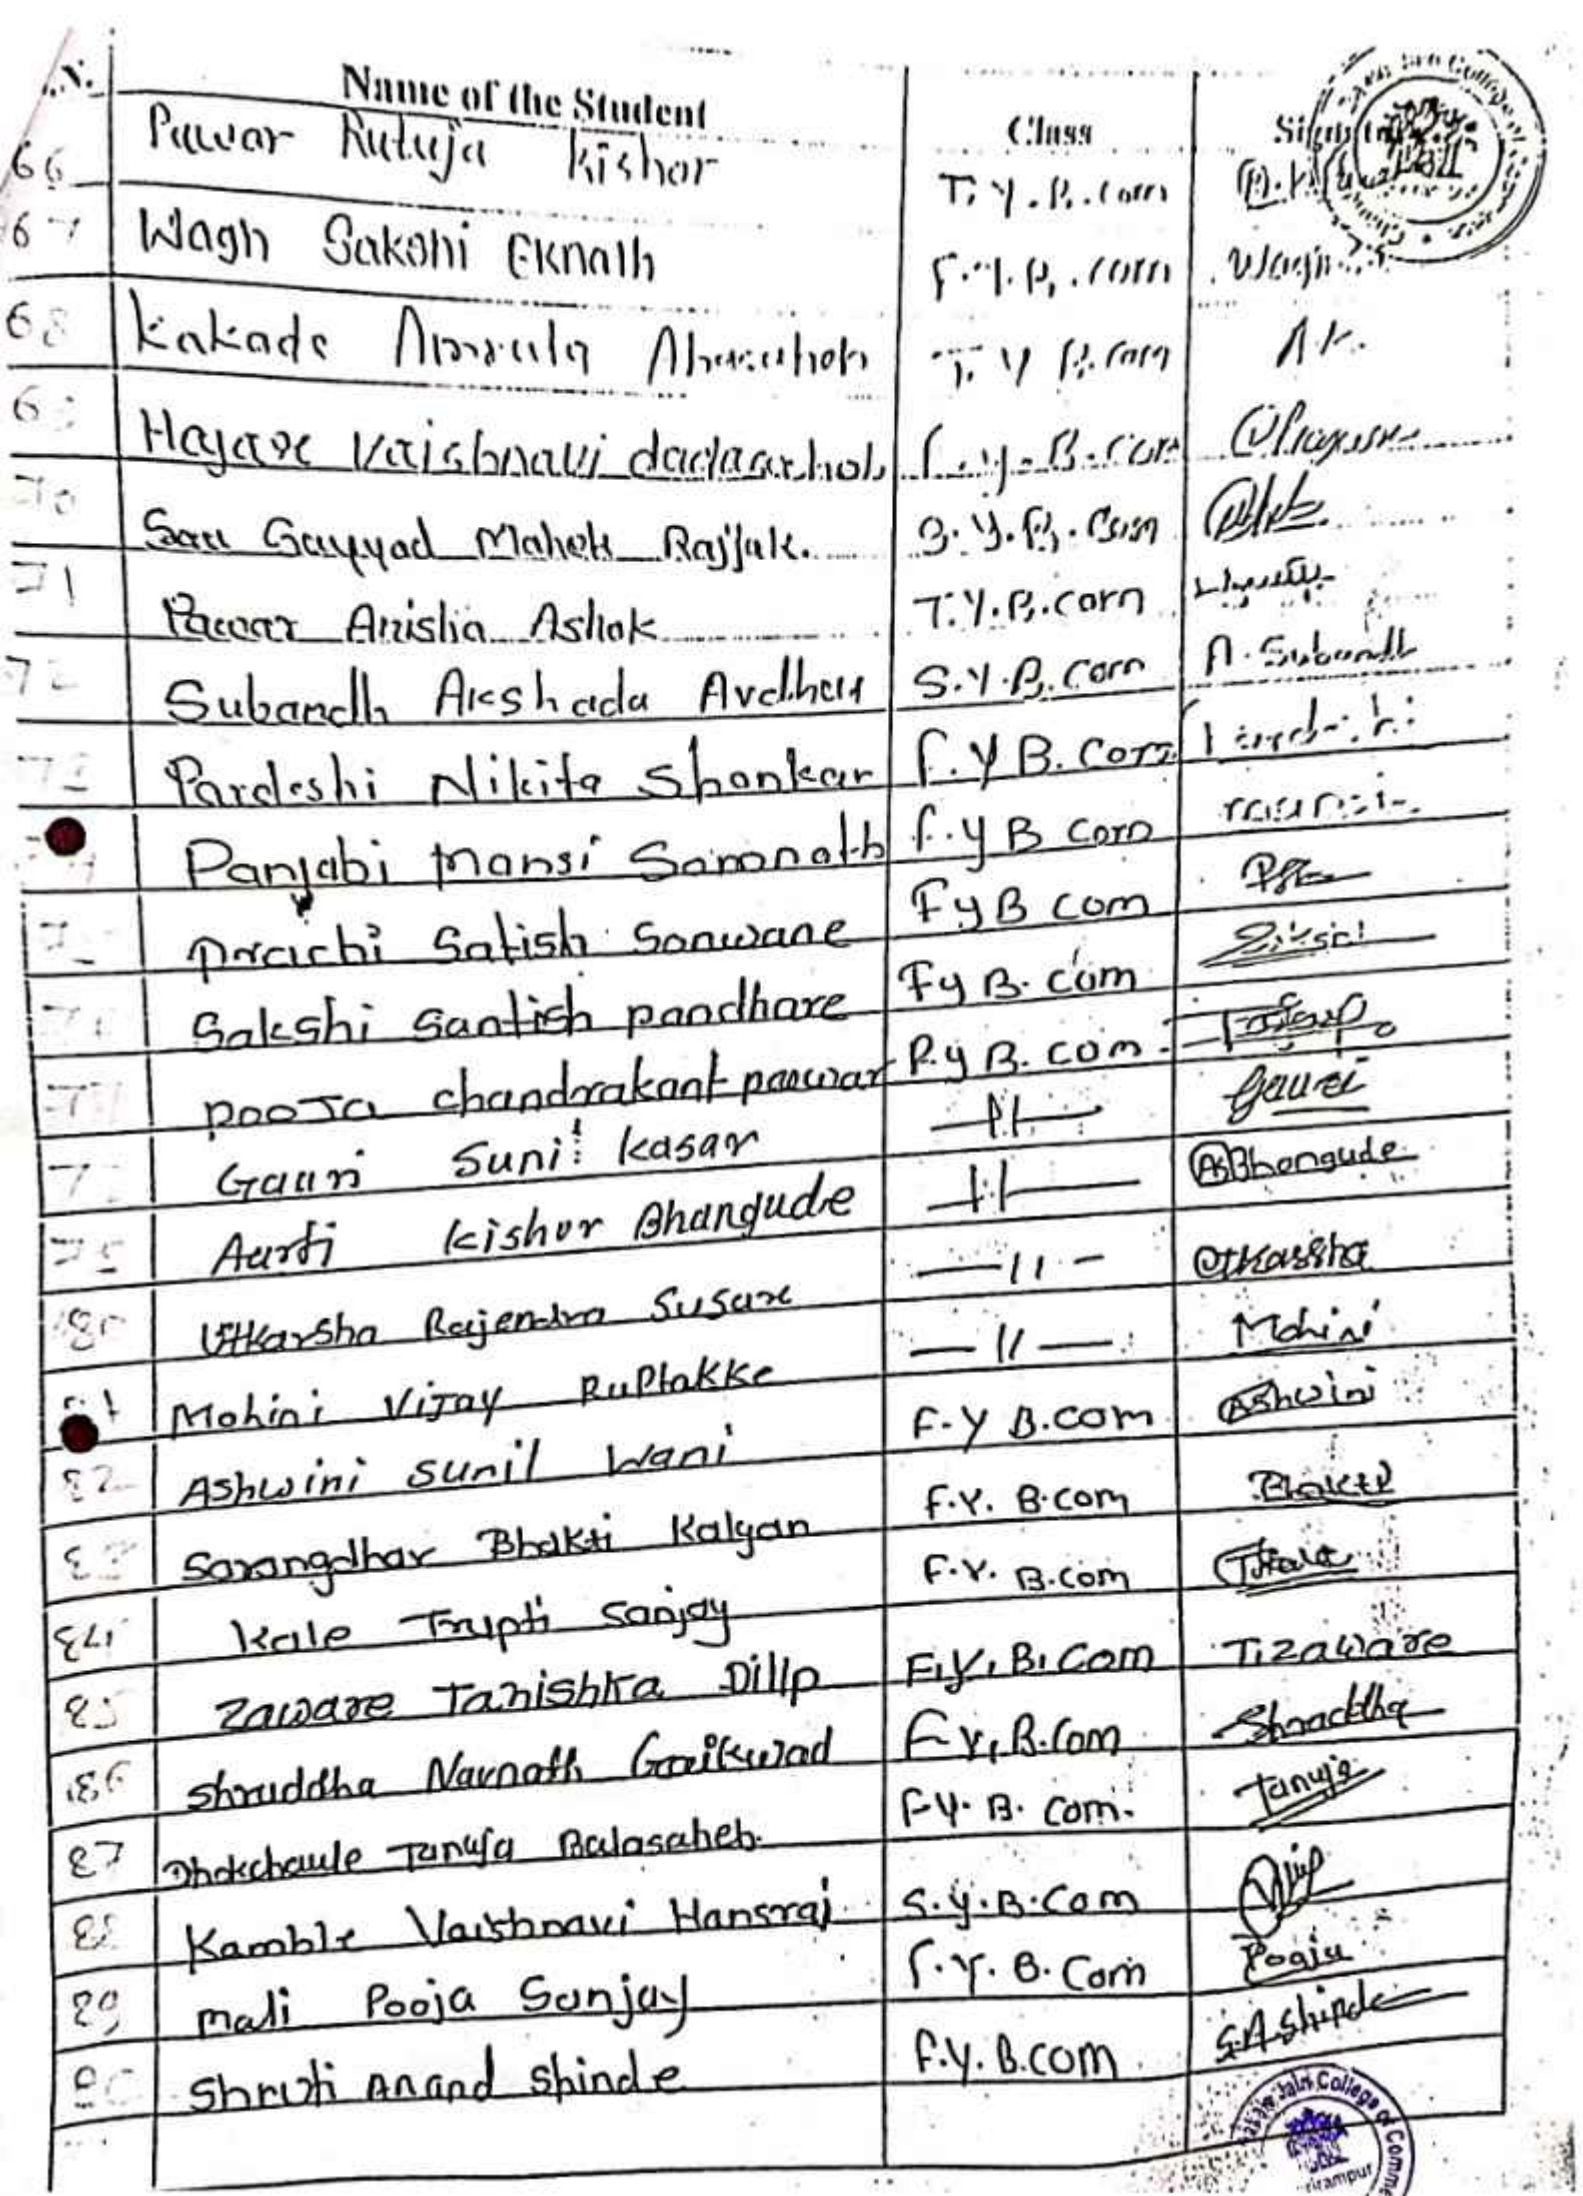 Name of the Student Class
66 Pawar Rutuja Kishor T.Y.B.com
67 Wagh Sakshi Eknath F.Y.B.com Wagh
68 Kakade T.Y B.com A.K.
Hajare Vaishnavi dadasaheb F.y.B.com
70 Sayyad Mahek Rajjak. S.Y.B.Com
71 Pawar Anisha Ashok T.Y.B.com
72 Subandh Akshada Avdhut S.Y.B.com A.Subandh
Pardeshi Nikita Shankar F.Y B.Com
Panjabi Mansi Somnath F.y B com mansi
Prachi Satish Sonwane F y B com
Sakshi Santish pandhare F y B. com
77 pooja chandrakant pawar F.y B. com.
Gauri Sunil kasar —11— Gauri
Aarti kishor Bhangude —11— ASBhangude
80 Utkarsha Rajendra Susare —11— Utkarsha
Mohini Vijay Ruptakke —11— Mohini
82 Ashwini sunil wani F.Y B.com Ashwini
83 Sarangdhar Bhakti Kalyan F.Y. B.com Bhakti
84 Kale Trupti Sanjay F.Y. B.com
85 Zaware Tanishka Dilip F.Y.B.Com T.Zaware
86 Shraddha Navnath Gaikwad F.Y.B.Com Shraddha
87 Dhokchaule Tanuja Balasaheb. F.Y. B. Com. Tanuja
88 Kamble Vaishnavi Hansraj S.y.B.Com
89 Mali Pooja Sanjay F.Y. B.Com Pooja
90 Shruti Anand Shinde F.Y.B.com S.A.Shinde
Jain College of Comme